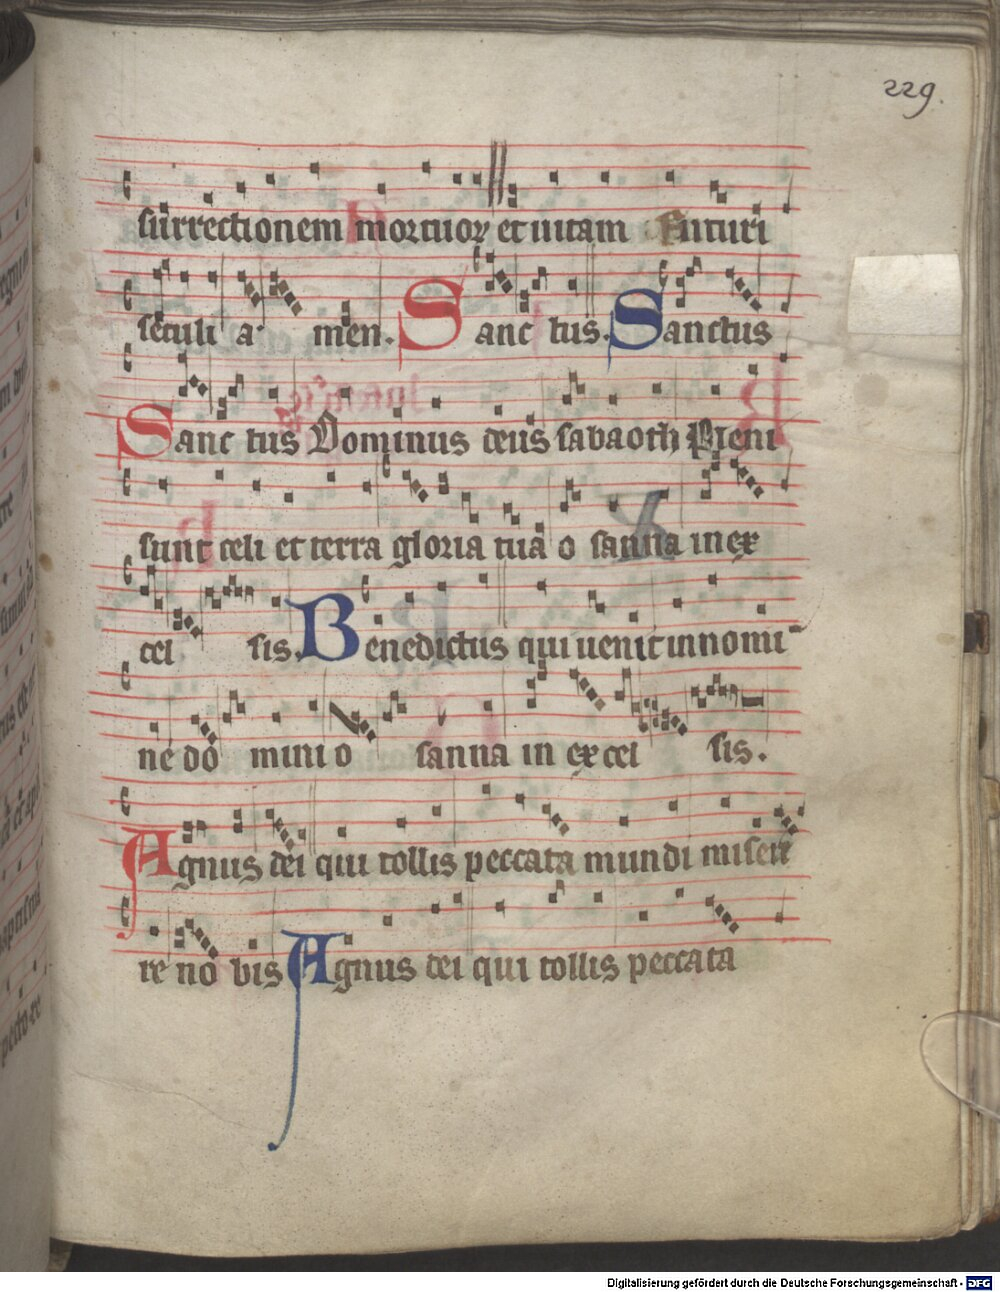 229.
surrectionem mortuoꝝ et uitam Futuri
seculi a men. Sanc tus. Sanctus
Sanc tus Dominus deus sabaoth Pleni
sunt celi et terra gloria tua o sanna in ex
cel sis. Benedictus qui uenit in nomi
ne do mini o sanna in ex cel sis.
Agnus dei qui tollis peccata mundi mise
re no bis Agnus dei qui tollis peccata
Digitalisierung gefördert durch die Deutsche Forschungsgemeinschaft - DFG